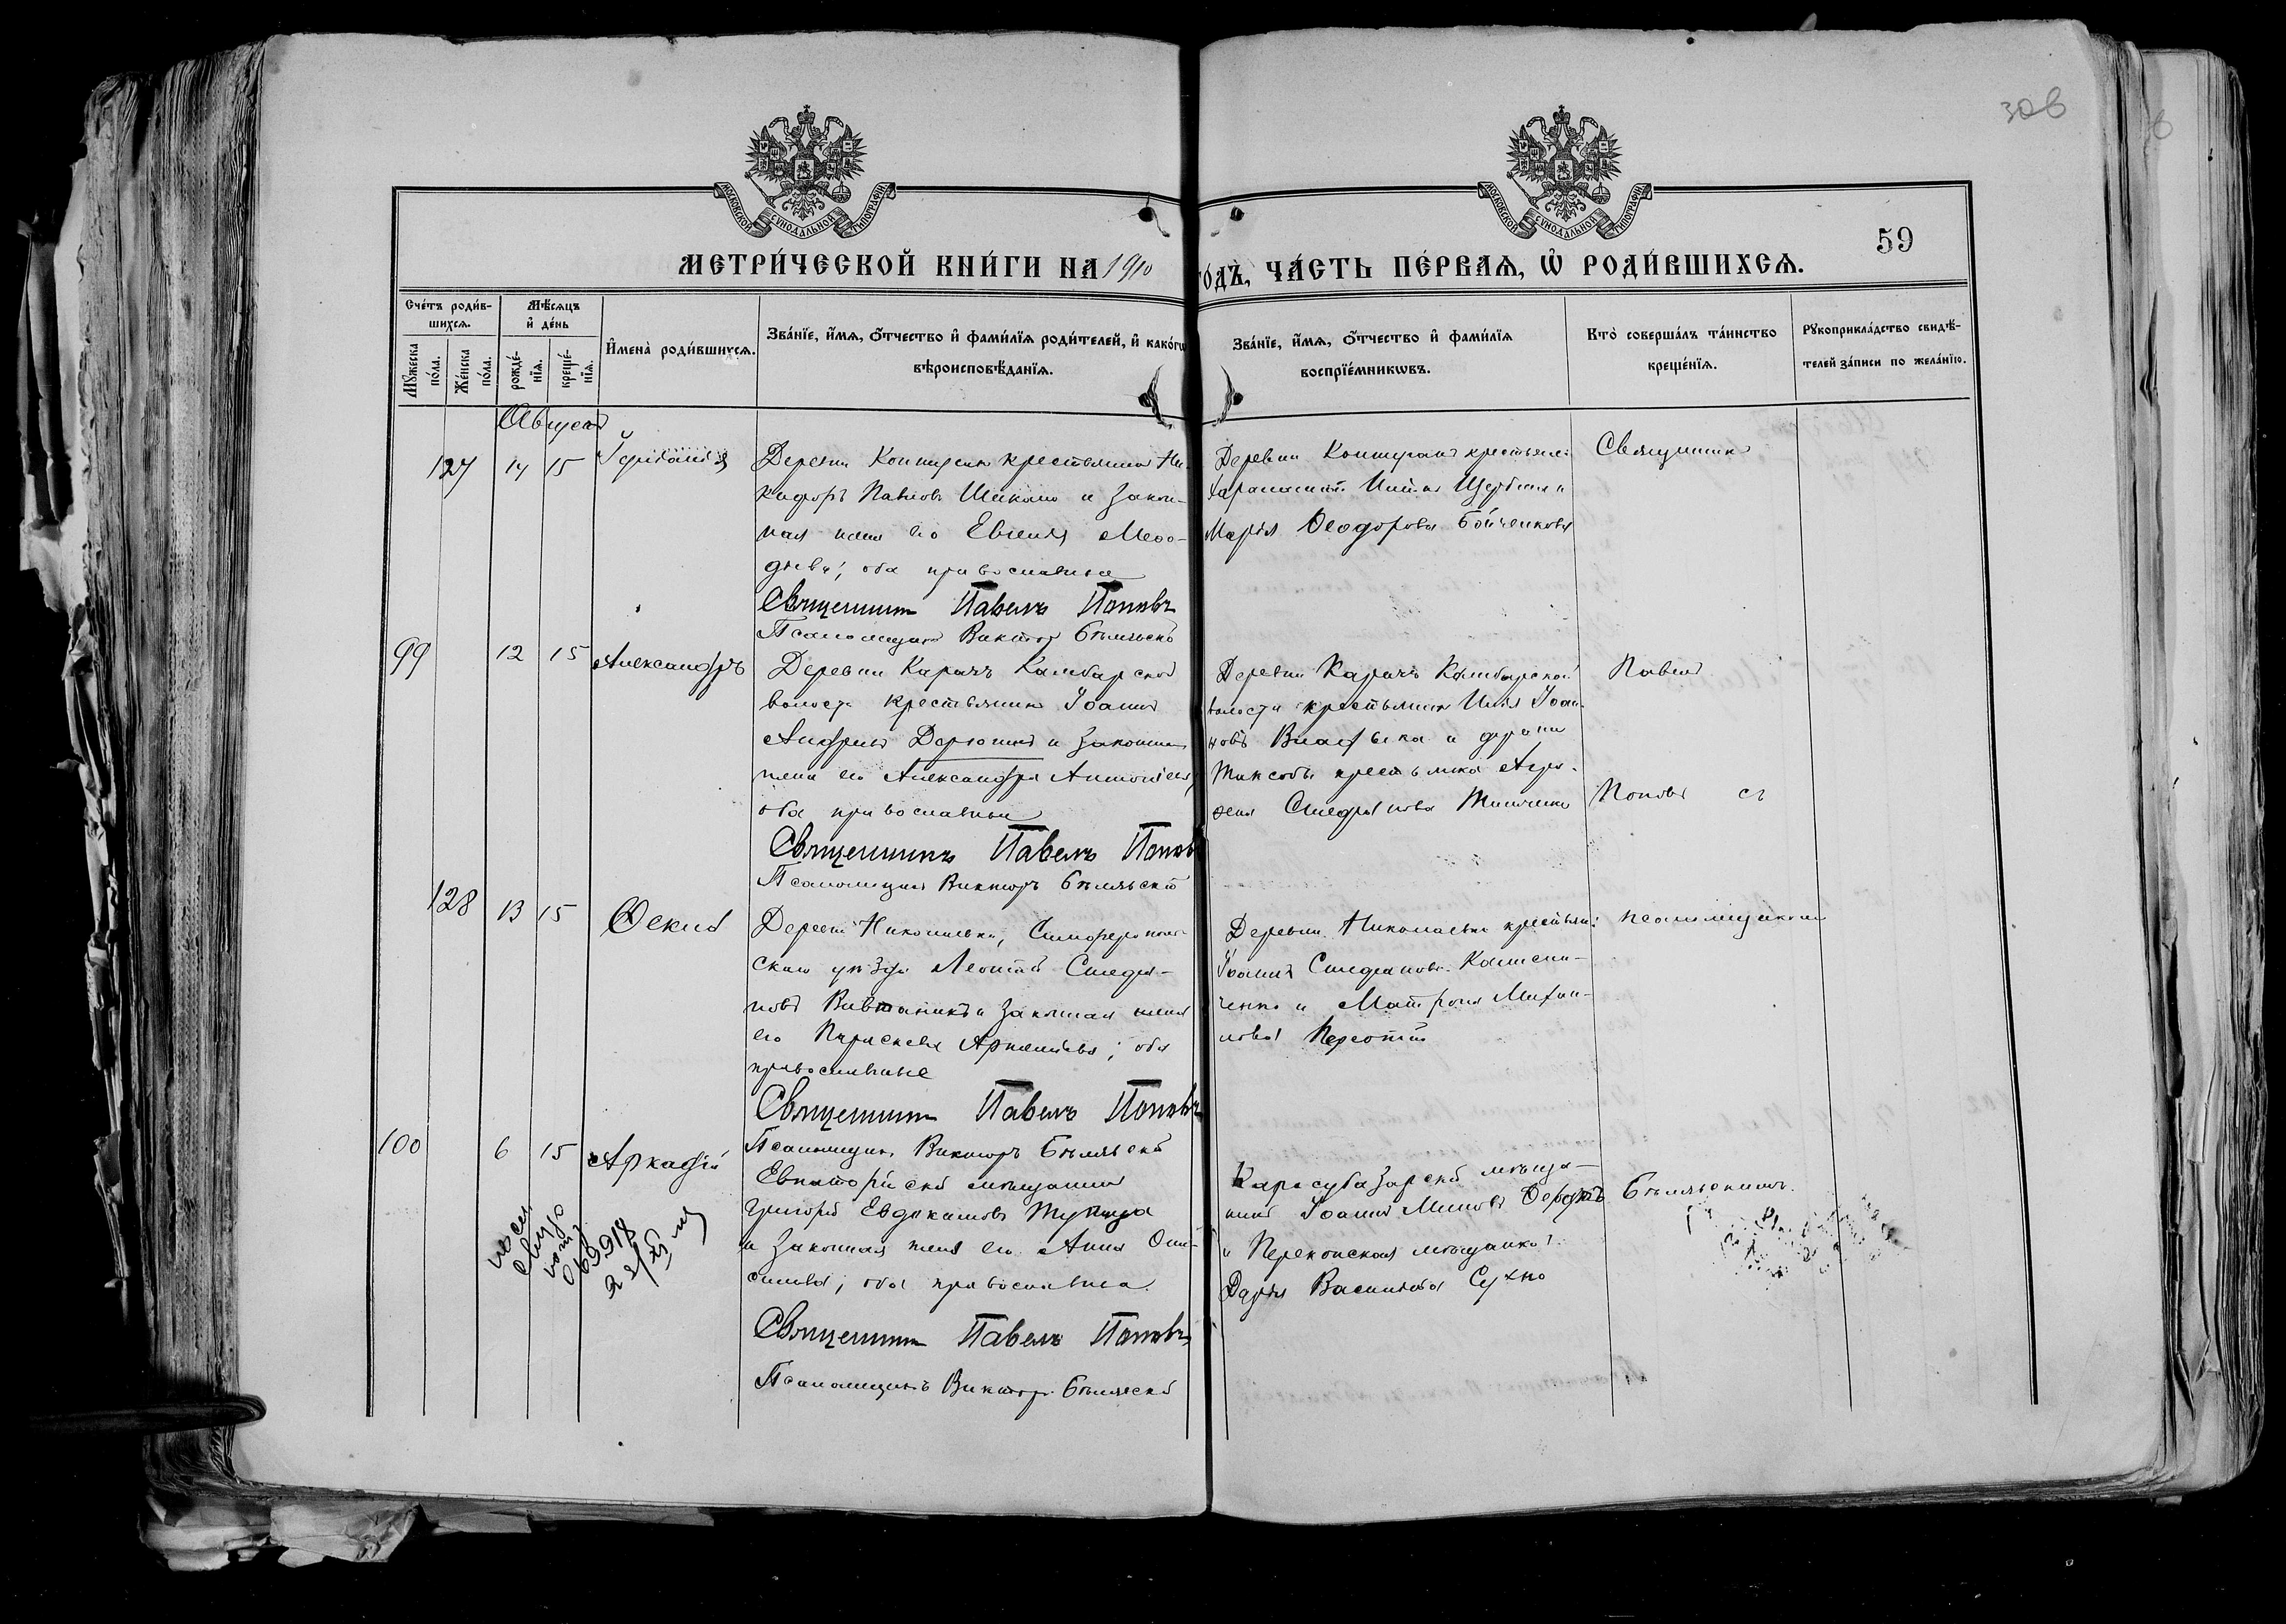 308
МОСКОВСКОЙ СѴНОДАЛЬНОЙ ТИПОГРАФІИ
МОСКОВСКОЙ СѴНОДАЛЬНОЙ ТИПОГРАФІИ
59
МЕТРИ́ЧЕСКОЙ КНИ́ГИ НА 1910 ГО́ДЪ, ЧА́СТЬ ПЕ́РВАЯ, Ѡ РОДИ́ВШИХСЯ.
Сче́тъ роди́в-
шихся.
Мѣ́сяцъ
и҆ де́нь
Мꙋ́жеска
по́ла.
Же́нска
по́ла.
рожде́-
нїя.
креще́-
нїя.
И҆мена̀ роди́вшихся.
Зва́нїе, и҆́мя, ѻ҆́тчество и҆ фами́лїя роди́телей, и҆ како́гѡ
вѣроисповѣ́данїя.
Зва́нїе, и҆́мя, ѻ҆́тчество и҆ фами́лїя
воспрїе́мникѡвъ.
Кто̀ соверша́лъ та́инство
креще́нїя.
Рꙋкоприкла́дство свидѣ́-
телей за́писи по жела́нїю.
Августъ
127 14 15
Деревни крестьянинъ Ни-
кифоръ Павловъ и закон-
ная жена его Евгенія Меѳо-
дьева, оба православные
Священникъ Павелъ Поповъ
Псаломщикъ Викторъ Бѣляевскій
Деревни крестьяне:
и
Марія Ѳеодорова Бойченкова
Священникъ
99 12 15 Александръ
Деревни Карачъ Камбарской
волости крестьянинъ Іоаннъ
Андреевъ и законная
жена его Александра Антоніева,
оба православные
Священникъ Павелъ Поповъ
Псаломщикъ Викторъ Бѣляевскій
Деревни Карачъ Камбарской
волости крестьянинъ Илія Іоан-
новъ и деревни
крестьянка Агри-
пена Стефанова
Павелъ
Поповъ съ
128 13 15 Ѳекла
Деревни Николаевки, Симферополь-
скаго уѣзда Леонтій Стефа-
новъ Вивтаникъ и законная жена
его Параскева Артемьева; оба
православные
Священникъ Павелъ Поповъ
Псаломщикъ Викторъ Бѣляевскій
Деревни Николаевки крестьяне:
Іоаннъ Стефановъ Калисни-
ченко и Матрона Михаи-
лова
псаломщикомъ
100 6 15 Аркадій
Евпаторійскій мѣщанинъ
Григорій Евдокимовъ Тупица
и законная жена его Анна Они-
симова, оба православные.
Священникъ Павелъ Поповъ
Псаломщикъ Викторъ Бѣляевскій
Карасубазарскій мѣща-
нинъ Іоаннъ Миновъ
и Перекопская мѣщанка
Дарія Васильева Сухно
Бѣляевскимъ.
069918